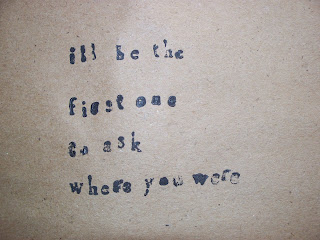 ill be the
first one
to ask
where you were